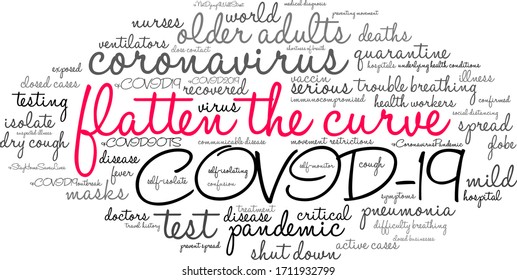 #NotDying4WallStreet
nurses world deaths
ventilators older adults quarantine
close contact shortness of breath
coronavirus hospitals underlying health conditions
exposed #COVID2019 vaccin illness
closed cases #COVID19 recovered serious trouble breathing
testing virus immunocompromised health workers confirmed
isolate flatten the curve social distancing
suspected illness communicable disease movement restrictions spread
dry cough #COVIDIOTS #CoronavirusPandemic fobe
#StayHomeSaveLives disease self-isolating self-monitor cough
fever COVID-19 mild
#COVID19outbreak self-isolate confusion symptoms hospital
masks
doctors treatment disease critical pneumonia
travel history test pandemic difficulty breathing
prevent spread closed businesses
shut down active cases
shutterstock.com · 1711932799